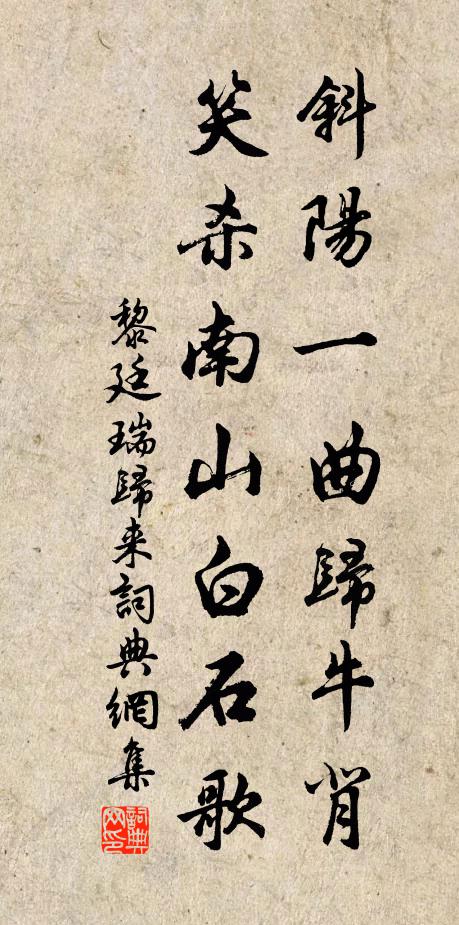 斜陽一曲歸牛背
笑杀南山白石歌
黎廷瑞歸来詞典網集
詞典
网印